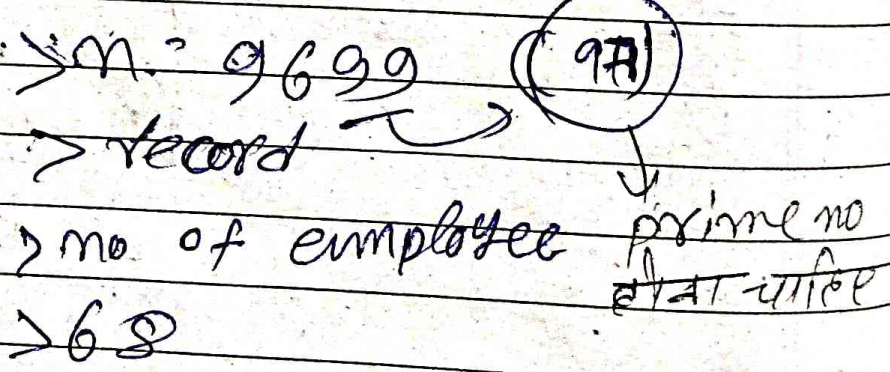 > n = 9699 (97)
> record
> no of eimployee prime no
होना चाहिए
> 68